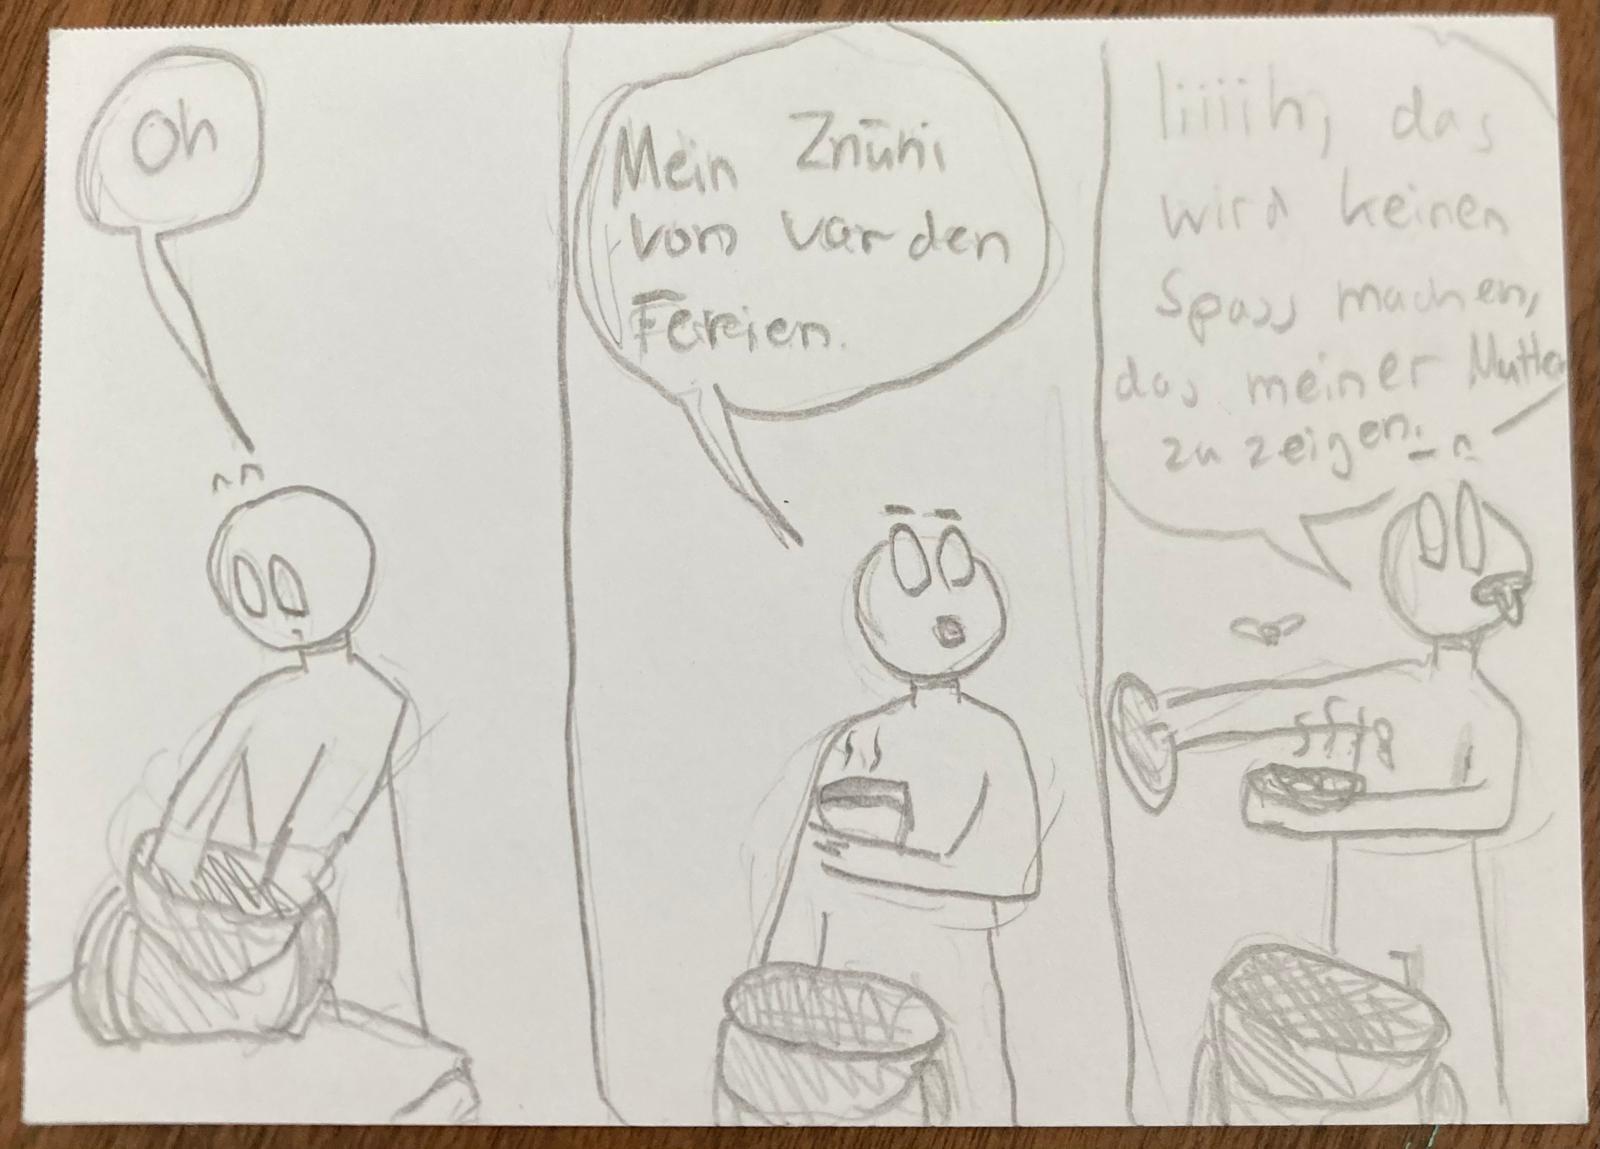 Oh
Mein Znüni
vom vor den
Fereien.
Iiiiih, das
wird keinen
Spass machen,
das meiner Mutter
zu zeigen.